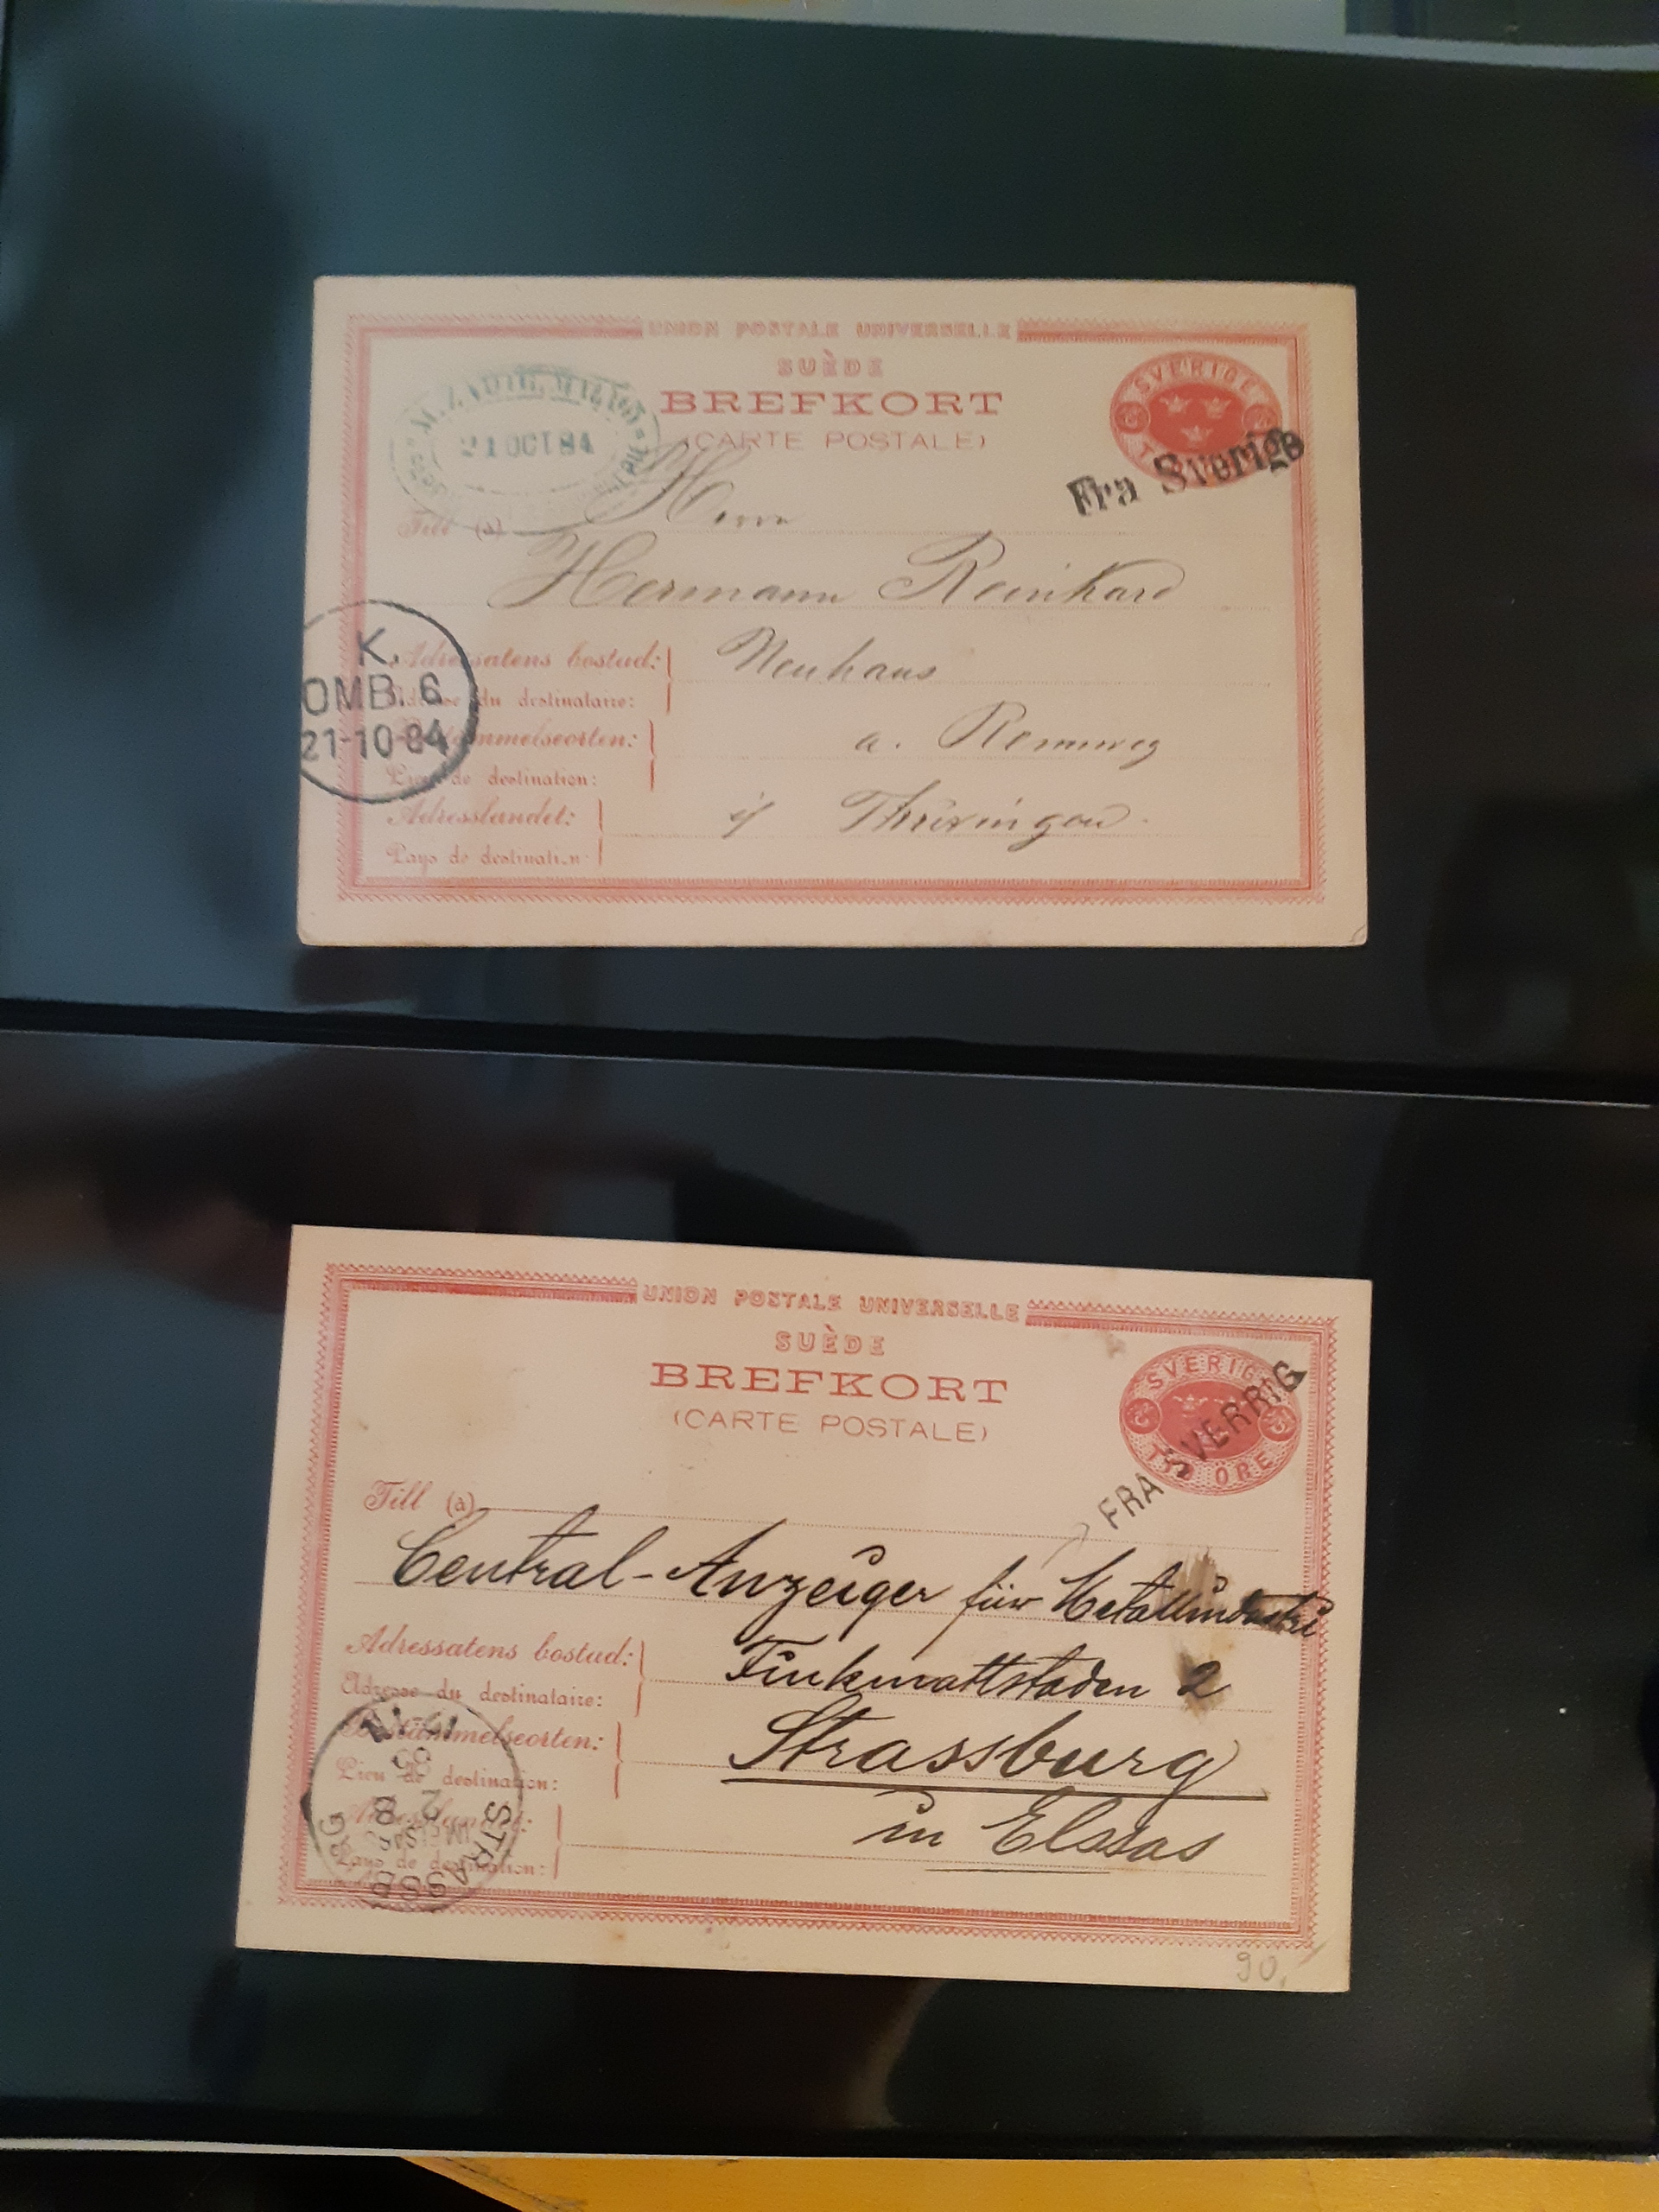 UNION POSTALE UNIVERSELLE
SUÈDE
BREFKORT
(CARTE POSTALE)
SVERIGE
M. ZADIG, MALMÖ
21 OCT 84
Fra Sverige
Till (à) Herrn
Hermann Reinhard
Adressatens bostad: Neuhaus
Adresse du destinataire:
K.
OMB. 6
21-10 84
Bestämmelseorten: a. Rennweg
Lieu de destination:
Adresslandet: i/ Thüringen.
Pays de destination:
UNION POSTALE UNIVERSELLE
SUÈDE
BREFKORT
(CARTE POSTALE)
SVERIG
TIO ÖRE
FRA SVERRIG
Till (à)
Central-Anzeiger für Metallindustri
Adressatens bostad: Finkmattstaden 2
Adresse du destinataire:
Bestämmelseorten: Strassburg
Lieu de destination:
Adresslandet: in Elssas
Pays de destination:
STRASSB
90,